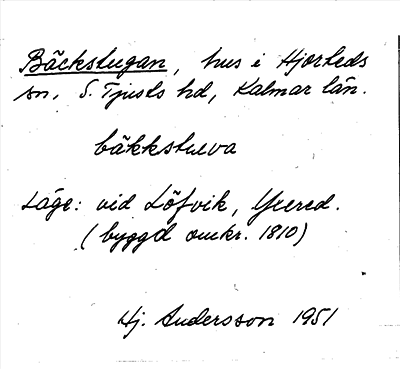 Bäckstugan, hus i Hjorteds
sn, S. Tjusts hd, Kalmar län.
bäkkstuva
Läge: vid Löfvik, Yxered.
(byggd omkr. 1810)
Hj. Andersson 1951